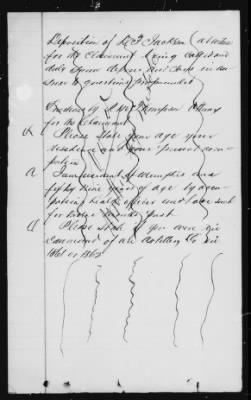 Deposition of K. F. Jackson (a witness
for the Claimant) being called and
duly sworn deposes and says in an-
swer to questions propounded
Examined by Thompson Atty
for the Claimant
Q. Please state your age your
residence and your present occu-
pation
A. I am resident of Memphis am
fifty nine years of age by occu-
pation health officer and have such
for twelve months past
Q. Please state if you were in
command of an Artillery Co in
1861 or 1862